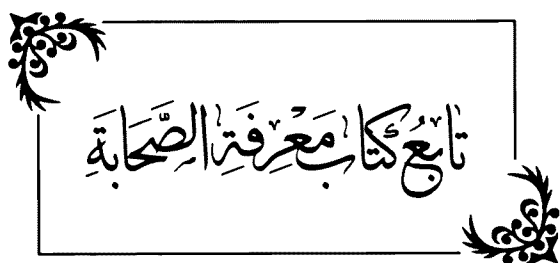 تَابعُ كتَاب مَعْرِفَةِ الصَّحَابَةِ